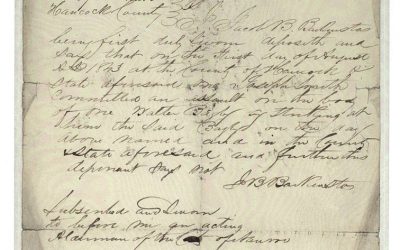 Hancock County } SS Jacob B. Backenstos
being first duly sworn deposeth and
Say that on the first day of August
AD 1843 at the County of Hancock &
State aforesaid one Joseph Smith
Committed an assault on the body
of one Walter Bagby by striking at
him the Said Bagby on the day
above named and in the County
& State aforesaid and further this
deponent Say not
J B Backenstos
Subscribed and Sworn
to before me an acting
Alderman of the City of Nauvoo